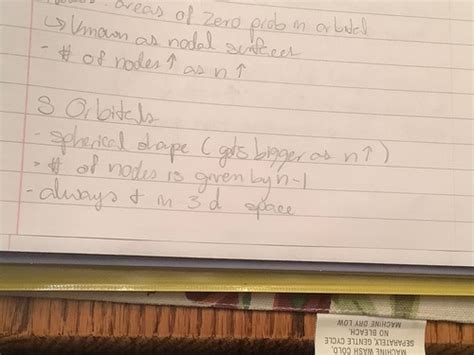 areas of zero prob in orbital
↳ known as nodal surfaces
- # of nodes ↑ as n ↑
S Orbitals
- spherical shape (gets bigger as n ↑)
- # of nodes is given by n-1
- always + in 3d space
MACHINE WASH COLD,
SEPARATELY, GENTLE CYCLE
NO BLEACH.
MACHINE DRY LOW